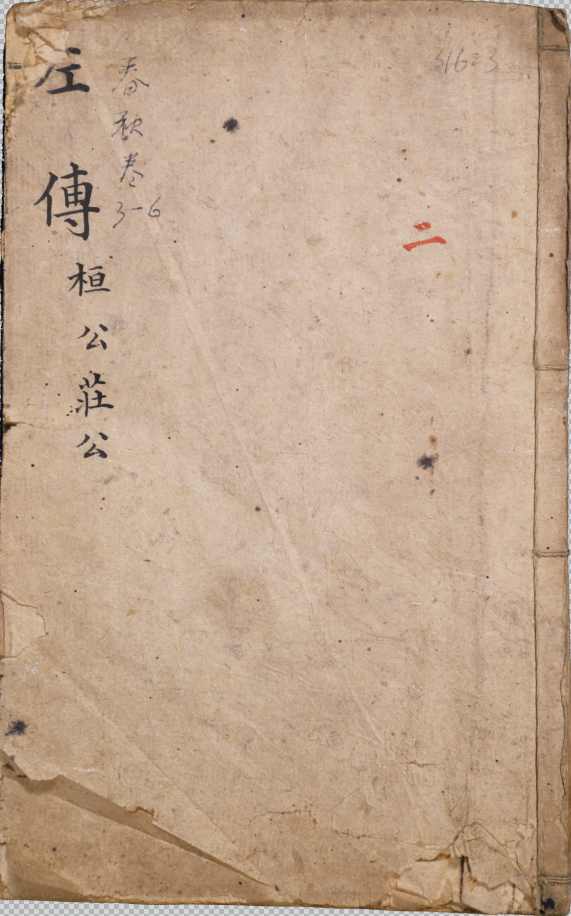 31623
二
春秋卷
3-6
左傳
桓公莊公